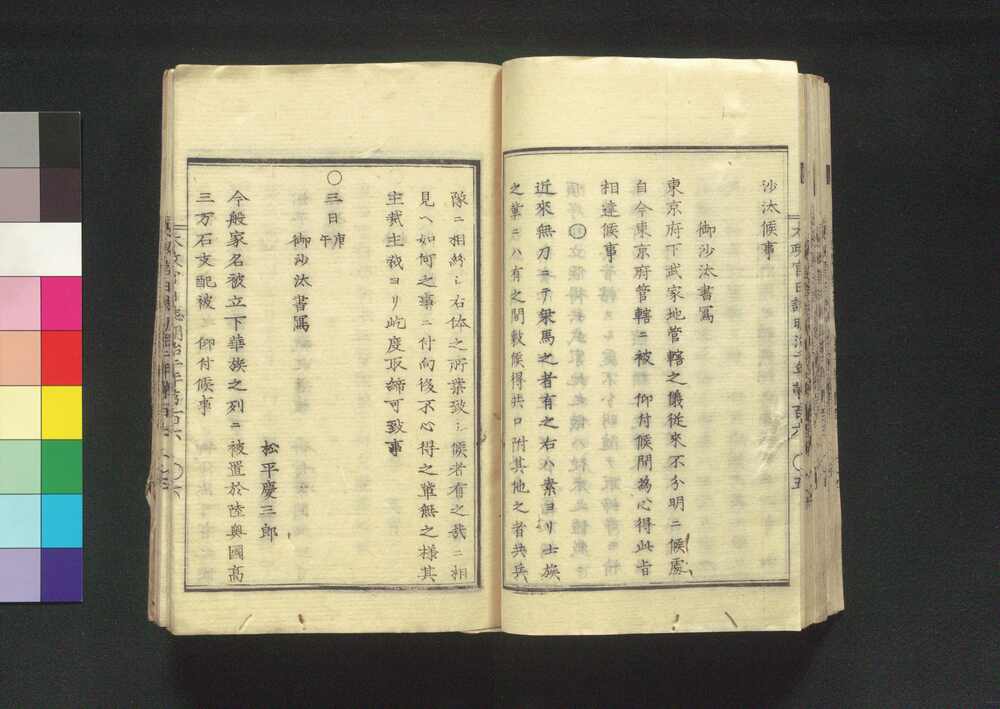 沙汰候事
御沙汰書寫
東京府下武家地管轄之儀従來不分明ニ候處
自今東京府管轄ニ被 仰付候間為心得此旨
相達候事
近來無刀ニテ乗馬之者有之右ハ素ヨリ士族
之業ニハ有之間敷候得共口附其他之者共兵
隊ニ相紛レ右体之所業致シ候者有之哉ニ相
見ヘ如何之事ニ付向後不心得之輩無之様其
主裁主裁ヨリ屹度取締可致事
○三日庚午
御沙汰書寫
松平慶三郎
今般家名被立下華族之列ニ被置於陸奥國高
三万石支配被 仰付候事